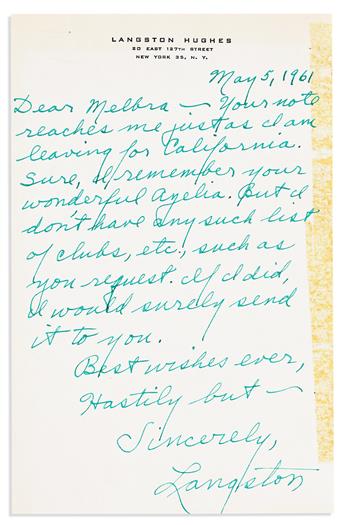 LANGSTON HUGHES
20 EAST 127TH STREET
NEW YORK 35, N. Y.
May 5, 1961
Dear Melbra — Your note
reaches me just as I am
leaving for California.
Sure, I remember your
wonderful Azelia. But I
don't have any such list
of clubs, etc., such as
you request. If I did,
I would surely send
it to you.
Best wishes ever,
Hastily but —
Sincerely,
Langston